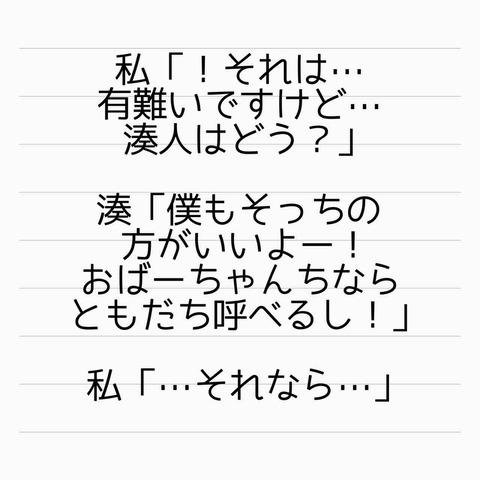 私「！それは…
有難いですけど…
湊人はどう？」
湊「僕もそっちの
方がいいよー！
おばーちゃんちなら
ともだち呼べるし！」
私「…それなら…」